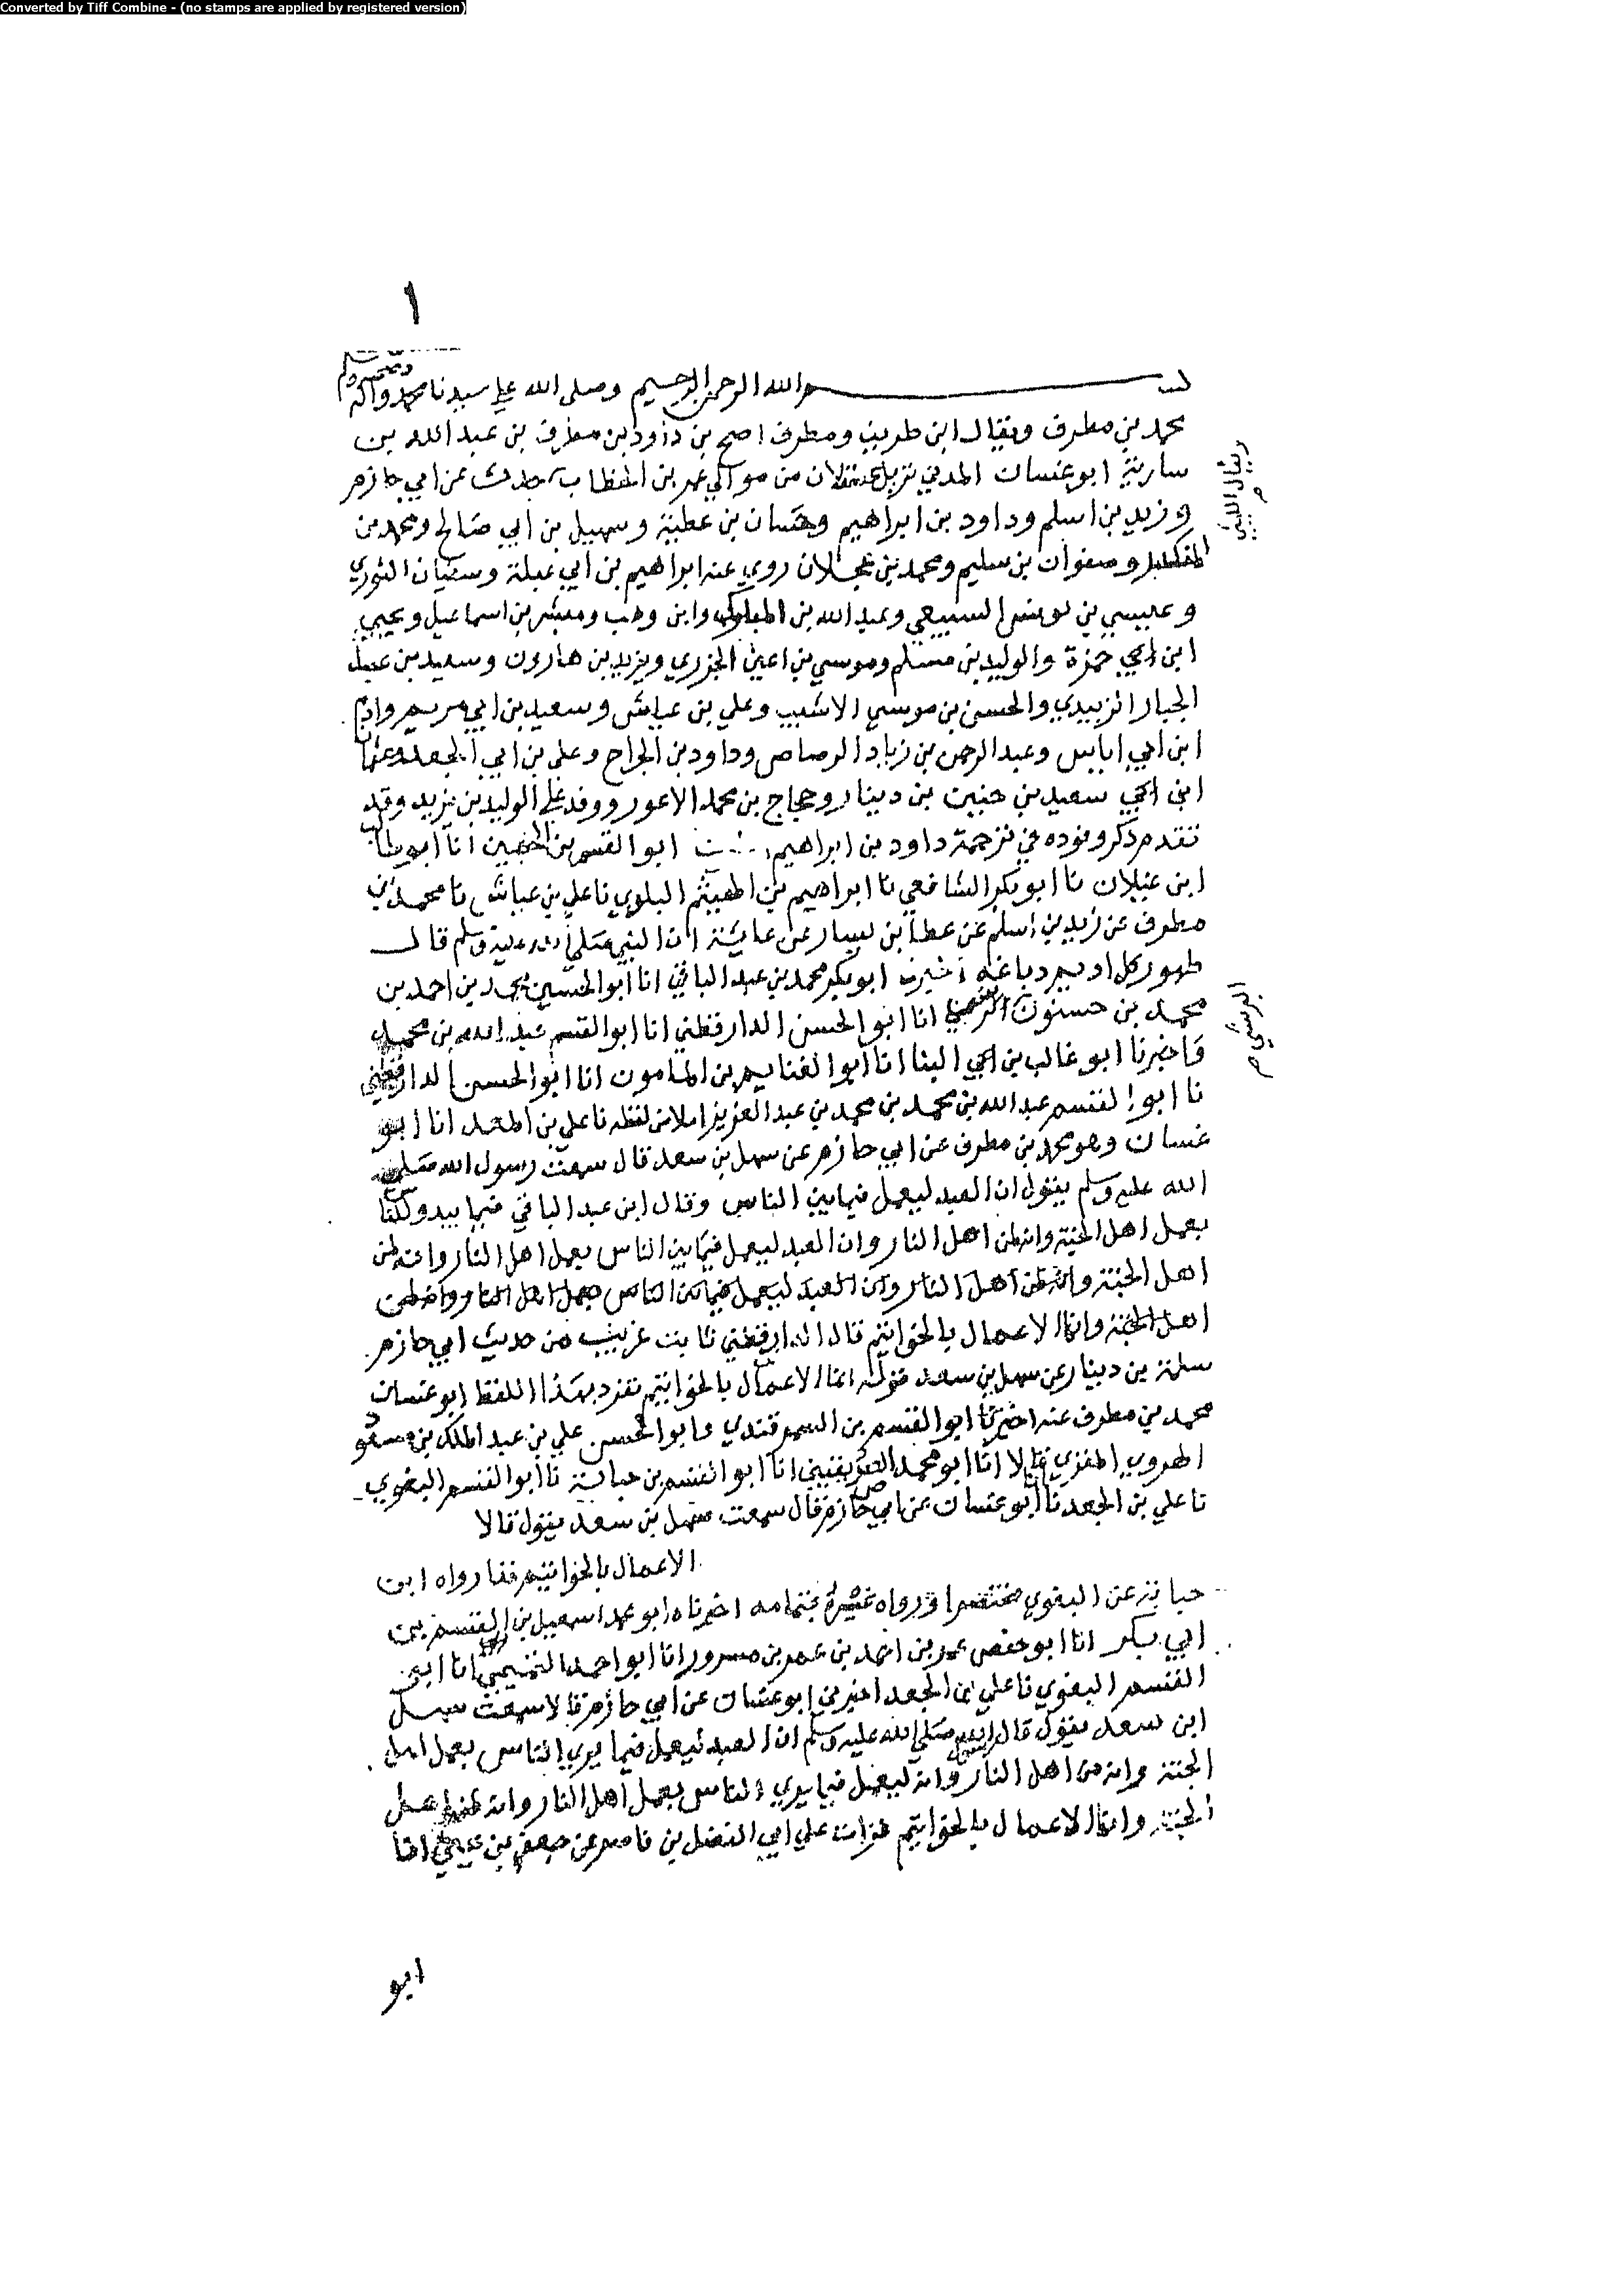 Converted by Tiff Combine - (no stamps are applied by registered version)
١
بسم الله الرحمن الرحيم وصلى الله على سيدنا محمد وآله وصحبه وسلم
محمد بن مطرف ويقال ابن طريف ومطرف اصح بن داود بن مطرف بن عبد الله بن
سارية ابو غسان المدني نزيل عسقلان من موالي عمر بن الخطاب حدث عن ابي حازم
وزيد بن اسلم وداود بن ابراهيم وحسان بن عطية وسهيل بن ابي صالح ومحمد بن
المنكدر وصفوان بن سليم ومحمد بن عجلان روي عنه ابراهيم بن ابي عبلة وسفيان الثوري
وعيسي بن يونس السبيعي وعبد الله بن المبارك وابن وهب ومبشر بن اسماعيل ويحيي
ابن حمزة والوليد بن مسلم وموسي بن اعين الجزري ويزيد بن هارون وسعيد بن عبد
الجبار الزبيدي والحسن بن موسي الاشيب وعلي بن عياش وسعيد بن ابي مريم وادم
ابن ابي اياس وعبد الرحمن بن زياد الرصاص وداود بن الجراح وعلي بن ابي الجعد وعثمان
ابن سعيد بن دينار وحجاج بن محمد الاعور ووفد علي الوليد بن يزيد وقد
تقدم ذكر وفوده في ترجمة داود بن ابراهيم ابو القسم بن الحصين انا ابو طالب
ابن غيلان نا ابو بكر الشافعي نا ابراهيم بن الهيثم البلدي نا علي بن عياش نا محمد بن
مطرف عن زيد بن اسلم عن عطا بن يسار عن عايشة ان النبي صلي الله عليه وسلم قال
طهور كل اديم دباغه اخبرنا ابو بكر محمد بن عبد الباقي انا ابو الحسين محمد بن احمد بن
محمد بن حسنون النرسي انا ابو الحسن الدارقطني انا ابو القسم عبد الله بن محمد
واخبرنا ابو غالب بن البنا انا ابو الغنايم بن المامون انا ابو الحسن الدارقطني
نا ابو القسم عبد الله بن محمد بن محمد بن عبد العزيز املا من لفظه نا علي بن الجعد انا ابو
غسان وهو محمد بن مطرف عن ابي حازم عن سهل بن سعد قال سمعت رسول الله صلي
الله عليه وسلم يقول ان العبد ليعمل فيما بين الناس وقال ابن عبد الباقي فيما يبدو للنا
بعمل اهل الجنة وانه لمن اهل النار وان العبد ليعمل فيما بين الناس بعمل اهل النار وانه لمن
اهل الجنة وانه لمن اهل النار وان العبد ليعمل فيما بين الناس بعمل اهل النار وانه لمن
اهل الجنة وانما الاعمال بالخواتيم قال الدارقطني ثابت غريب من حديث ابي حازم
سلمة بن دينار عن سهل بن سعد قوله انما الاعمال بالخواتيم تفرد بهذا اللفظ ابو غسان
محمد بن مطرف عنه اخبرنا ابو القسم بن السمرقندي وابو الحسن علي بن عبد الملك بن مسعود
الهروي المقري قالا انا ابو محمد الصريفيني انا ابو القسم بن حبابة نا ابو القسم البغوي
نا علي بن الجعد نا ابو غسان عن ابي حازم قال سمعت سهل بن سعد يقول قالا
الاعمال بالخواتيم رواه ابن
حبابة عن البغوي مختصرا ورواه غيره بتمامه اخبرناه ابو محمد اسمعيل بن القسم بن
ابي بكر انا ابو حفص عمر بن احمد بن عمر بن مسرور انا ابو احمد التميمي انا ابو
القسم البغوي نا علي بن الجعد اخبرني ابو غسان عن ابي حازم قال سمعت سهل
ابن سعد يقول قال النبي صلي الله عليه وسلم ان العبد ليعمل فيما يري الناس بعمل اهل
الجنة وانه من اهل النار وانه ليعمل فيما يري الناس بعمل اهل النار وانه لمن اهل
الجنة وانما الاعمال بالخواتيم قرات علي ابي الفضل بن ناصر عن جعفر بن يحيي انا
ابو